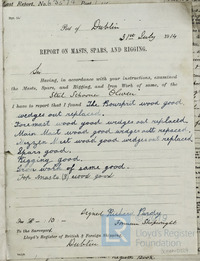 Port of Dublin
31st July 1914
REPORT ON MASTS, SPARS, AND RIGGING.
Sir
Having, in accordance with your instructions, examined
the Masts, Spars, and Rigging and Iron Work of same, of the
Steel Schooner
I have to report that I found The Bowsprit wood good,
wedges out replaced.
Foremast wood good wedges out replaced
Main Mast wood good wedges out replaced.
Mizzen Mast wood good wedges out replaced
Spars good.
Rigging good.
Iron work of same good.
Top Masts wood good
Signed Richard
Foreman Shipwright
To the Surveyor,
Lloyd's Register of British & Foreign Shipping
Dublin
Lloyd's Register
Foundation